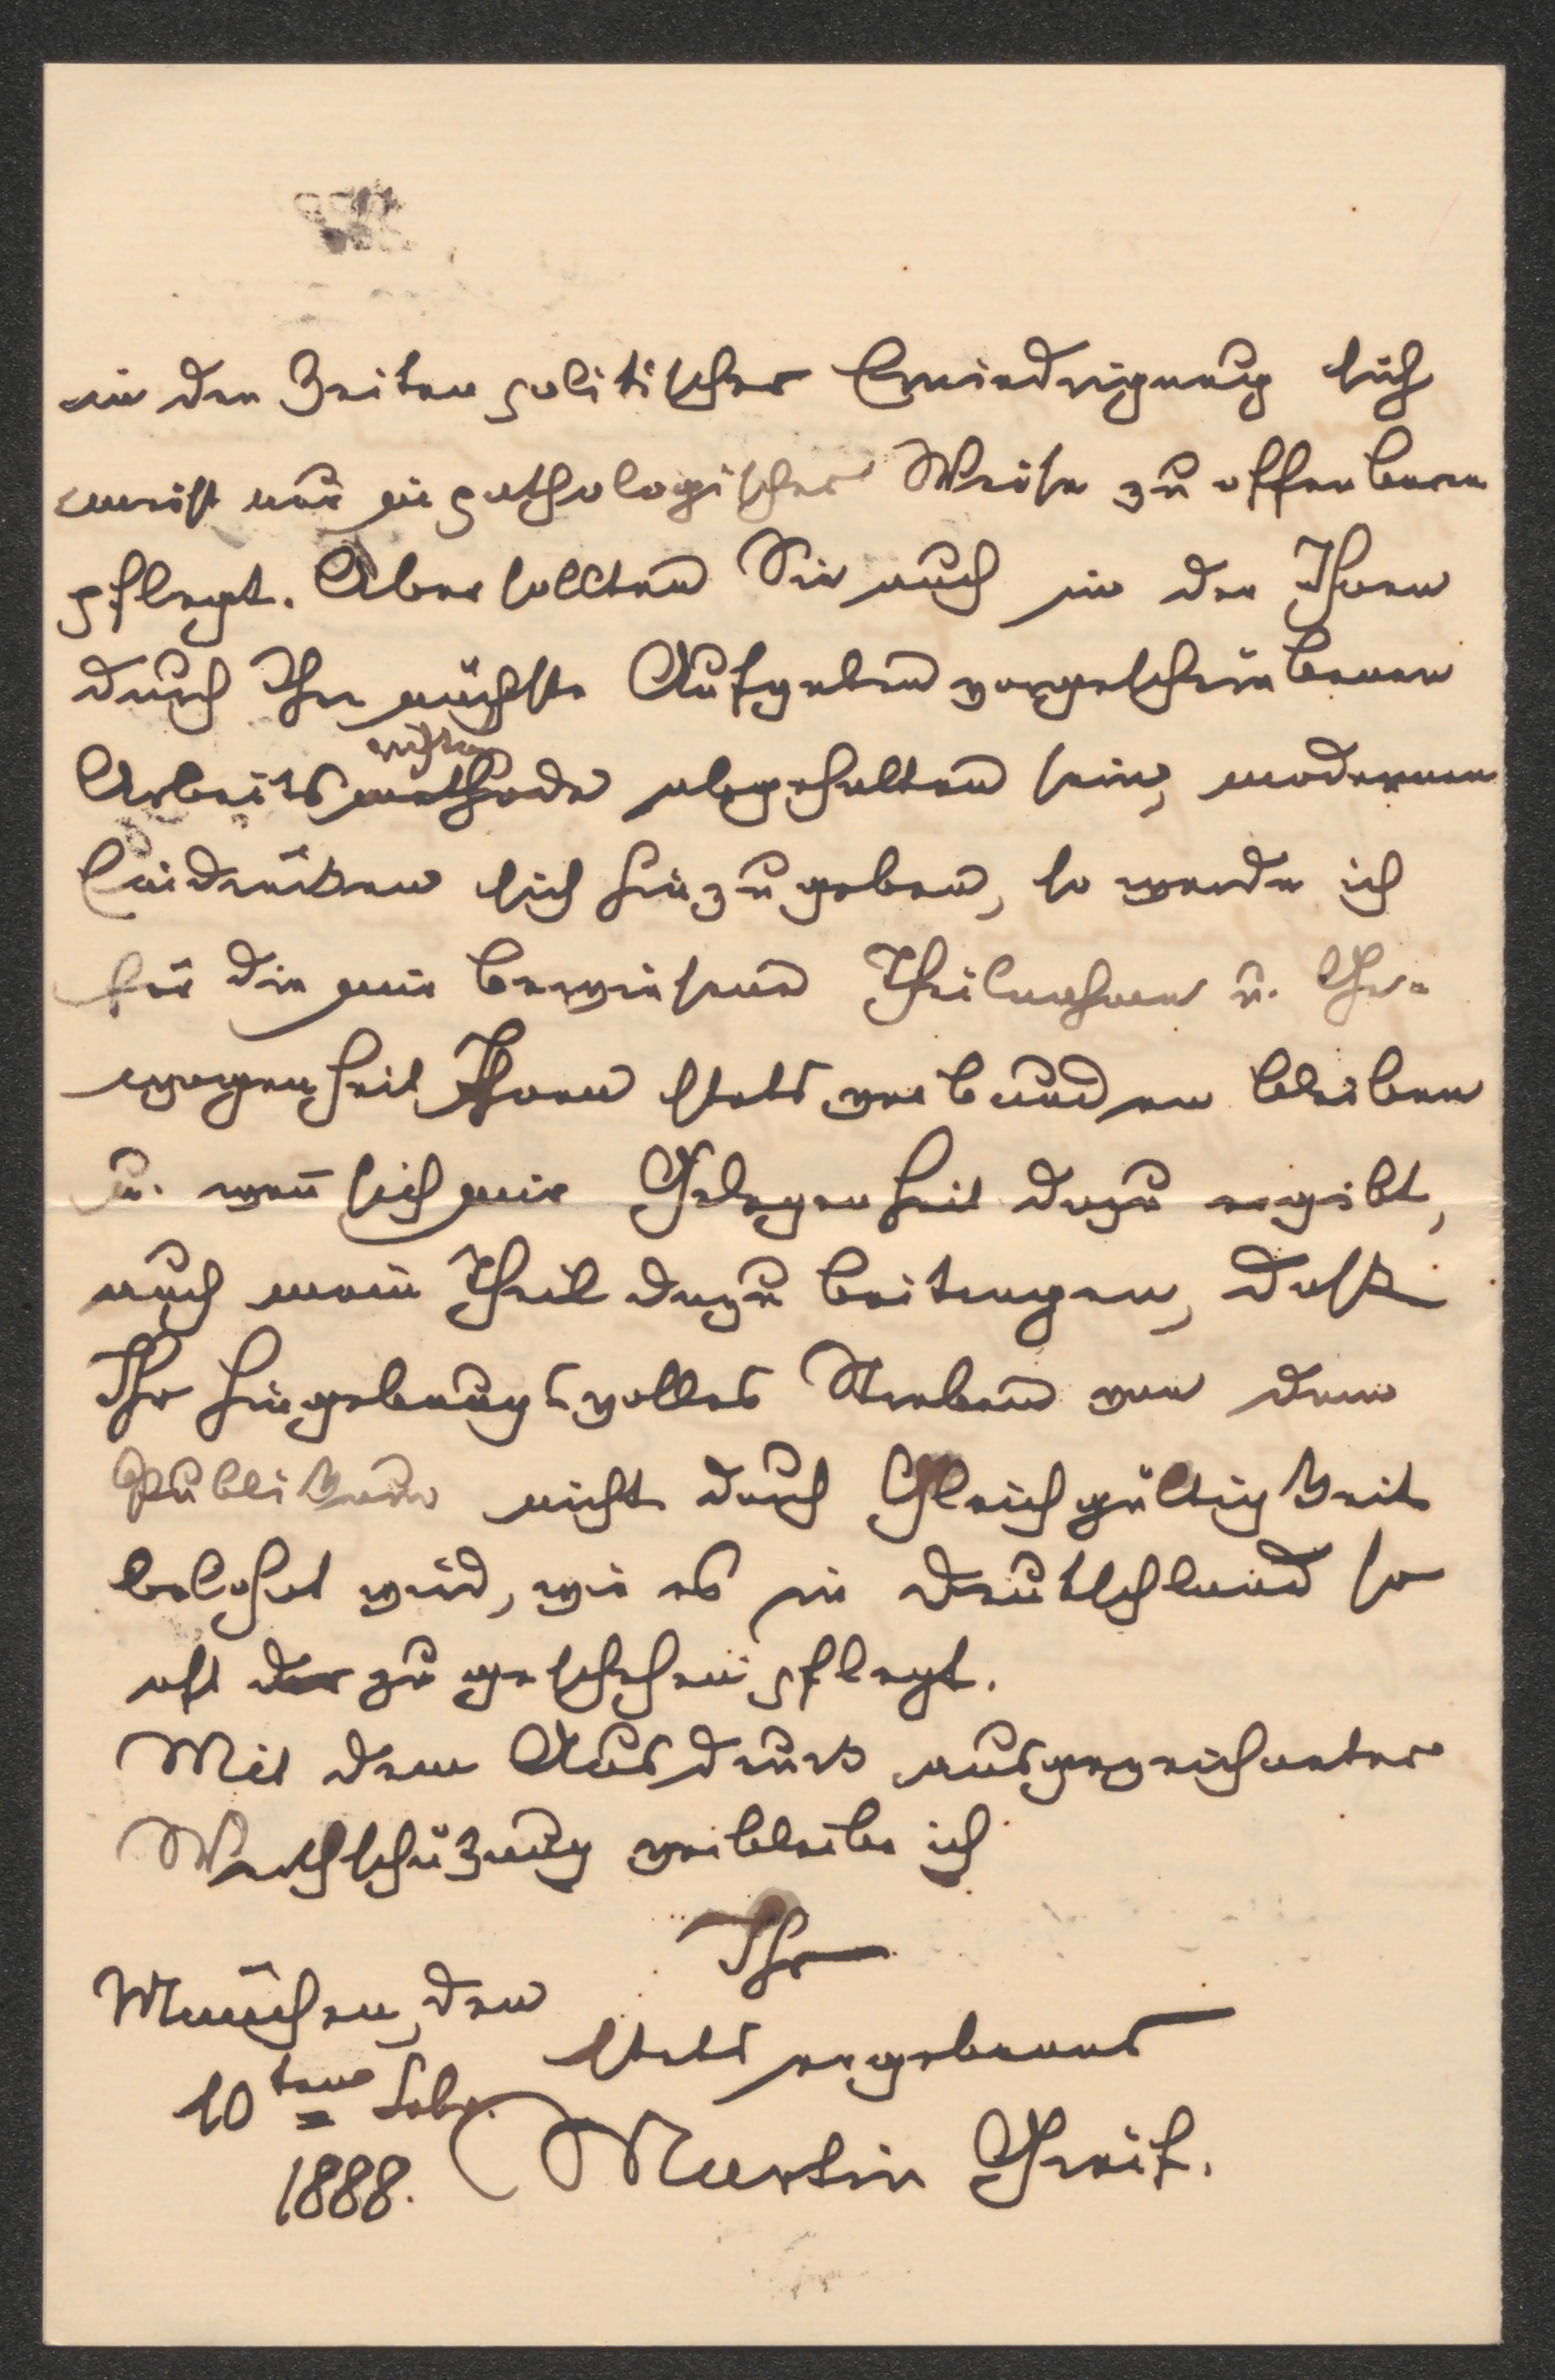 in den Zeiten politischer Erniedrigung sich
meist nur in pathologischer Weise zu offenbaren
pflegt. Aber sollten Sie auch in der Ihnen
durch Ihre nächste Aufgaben vorgeschriebenen
Arbeitsmethode abgehalten sein, modernen
Eindrücken sich hinzugeben, so werde ich
für die mir bewiesene Theilnahme u. Ge-
wogenheit Ihnen stets verbunden bleiben
u. wen̄ sich mir Gelegenheit dazu ergibt,
auch mein Theil dazu beitragen, daß
Ihr hingebungsvolles Streben von dem
Publikum nicht durch Gleichgültigkeit
belohnt wird, wie es in Deutschland so
oft der zu geschehen pflegt.
Mit dem Ausdruck ausgezeichneter
Werthschäzung verbleibe ich
Ihr
München, den
stets ergebener
10ten Febr.
Martin Greif.
1888.